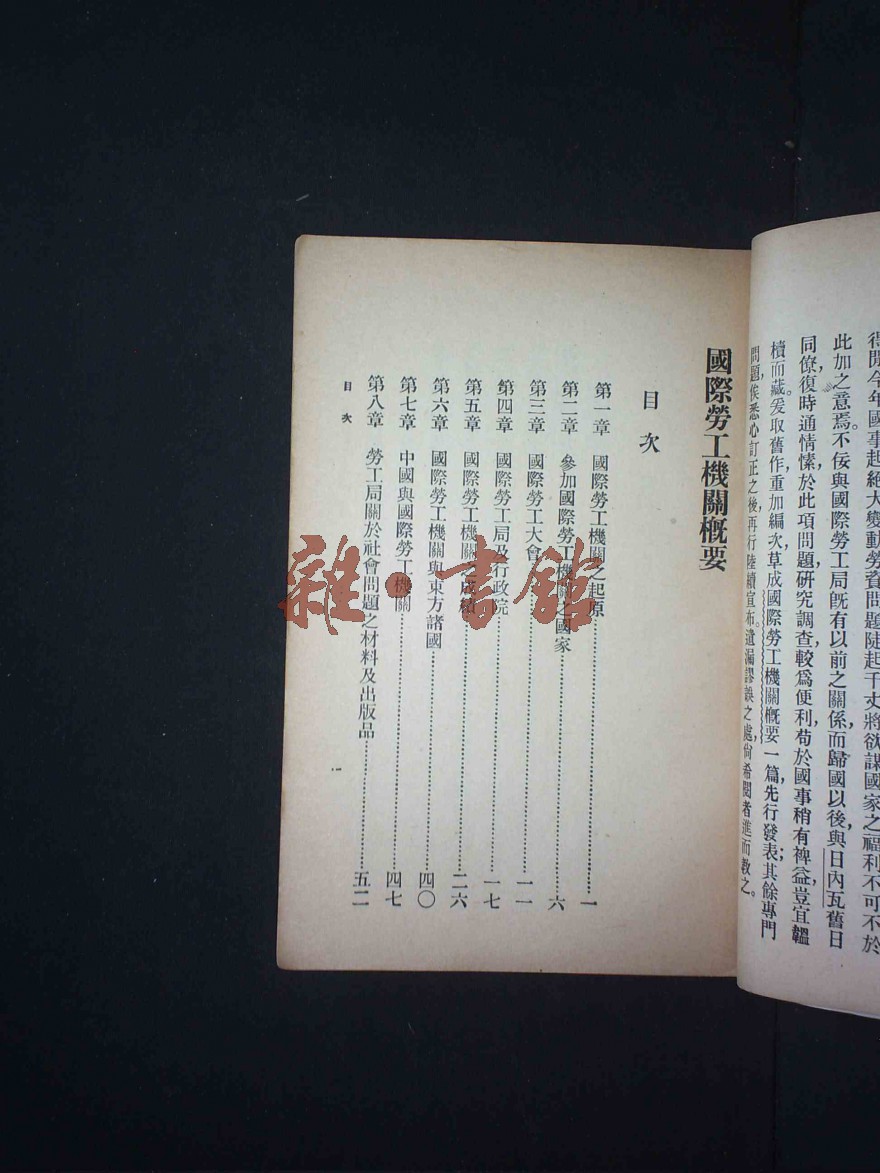 得閒今年國事起絕大變動勞資問題陡起千丈將欲謀國家之福利不可不於
此加之意焉。不佞與國際勞工局旣有以前之關係，而歸國以後，與日內瓦舊日
同僚復時通情愫，於此項問題，研究調查，較爲便利，苟於國事稍有裨益，豈宜韞
櫝而藏。爰取舊作，重加編次，草成國際勞工機關槪要一篇，先行發表；其餘專門
問題，俟悉心訂正之後，再行陸續宣布。遺漏謬誤之處，尙希閱者進而敎之。
國際勞工機關槪要
目次
第一章 國際勞工機關之起原……一
第二章 參加國際勞工機關之國家……六
第三章 國際勞工大會……一一
第四章 國際勞工局及行政院……一七
第五章 國際勞工機關之成績……二六
第六章 國際勞工機關與東方諸國……四〇
第七章 中國與國際勞工機關……四七
第八章 勞工局關於社會問題之材料及出版品……五二
目次
一
雜·書館